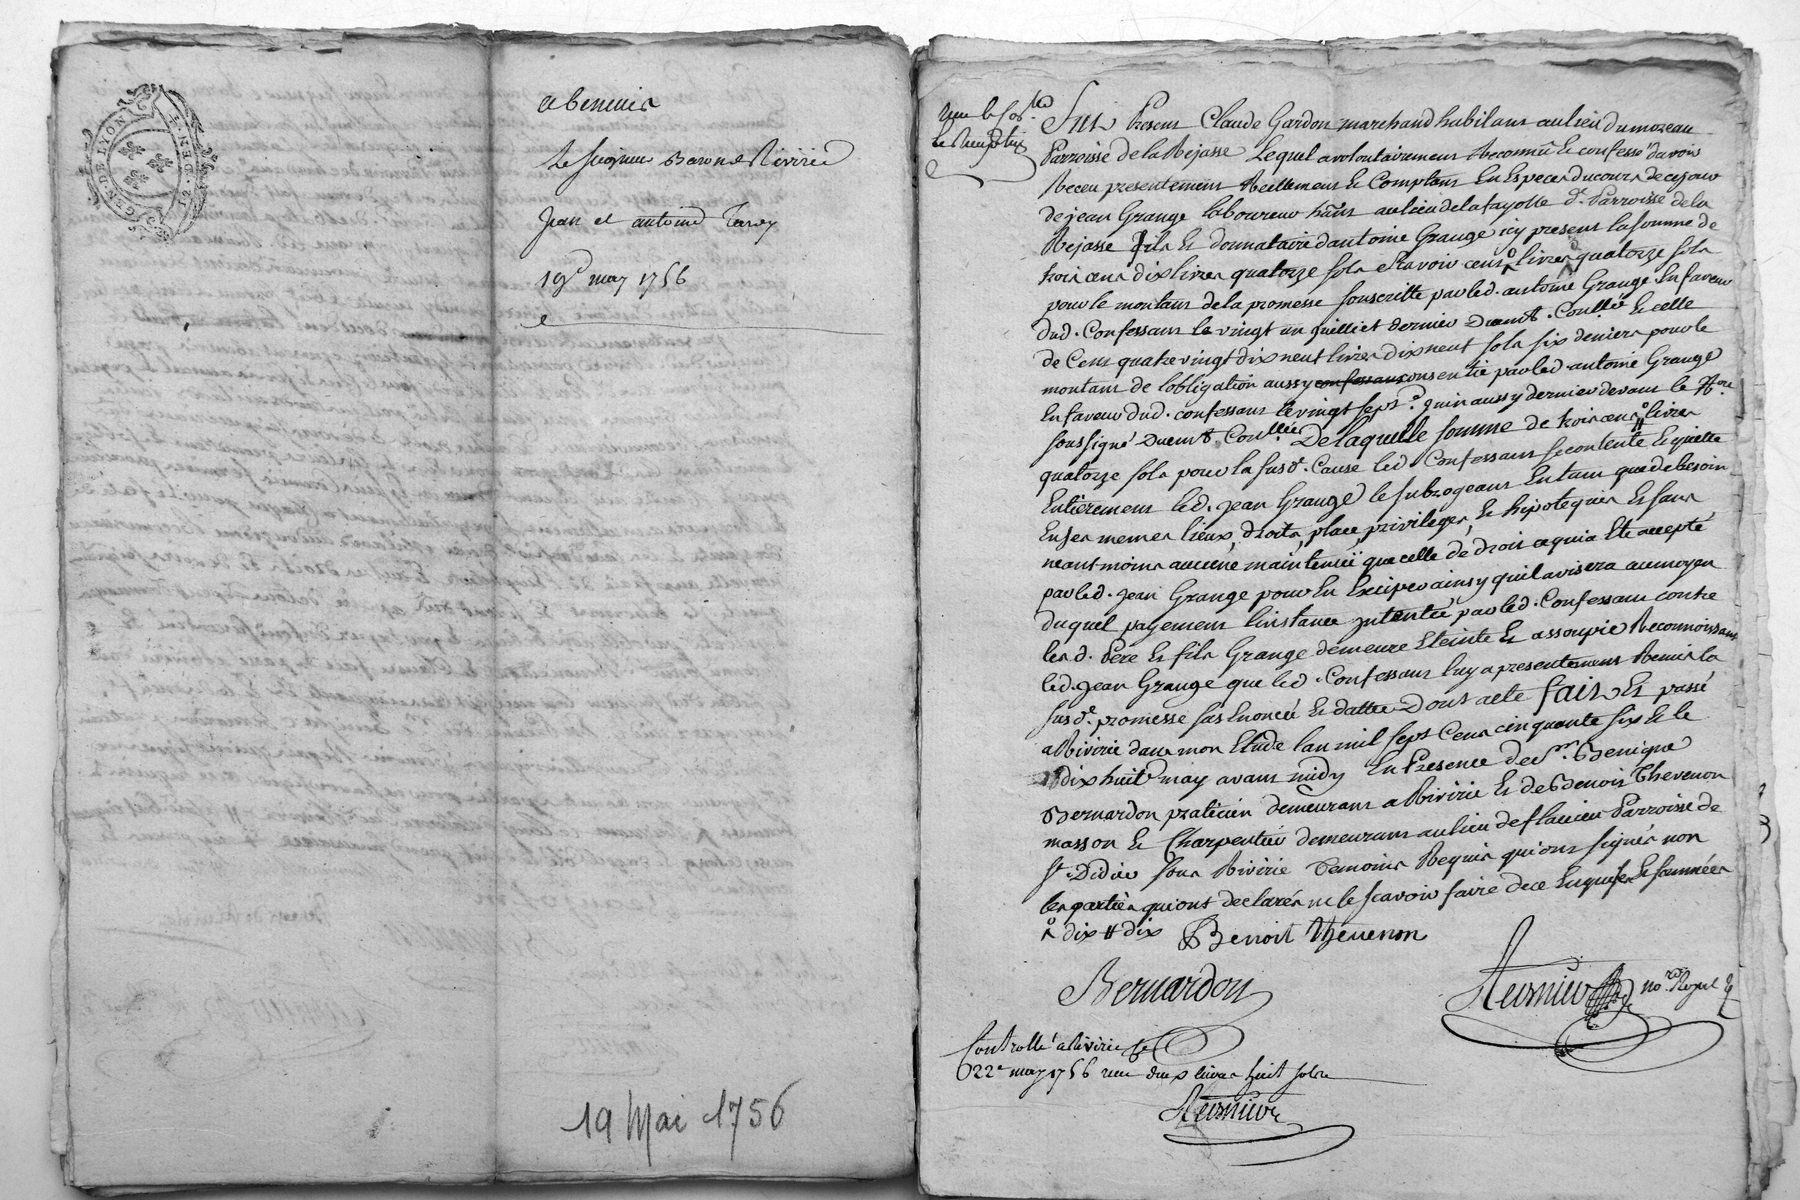 GEN. DE LYON
abenevis
Le seigneur Baron de Rivirie
Jean et antoine
19e may 1756
19 Mai 1756
Fut Present Claude Gardon marchand habitant au lieu du mozeau
Parroisse de la Rejasse Lequel a volontairement Reconnû et confessé davoir
Receu presentement Reellement et Comptant En Especes du cours de ce jour
de jean Grange laboureur hant au lieu de la fayolle d. Parroisse de la
Rejasse fils et donnataire dantoine Grange icy present la somme de
trois cens dix livres quatorze sols Scavoir cens livres quatorze sols
pour le montant de la promesse souscritte par led. antoine Grange En faveur
dud. Confessant le vingt un juilliet dernier Duemt. Conllée et celle
de Cent quatre vingt dix neuf livres dix neuf sols six deniers pour le
montant de lobligation aussy consentie par led. antoine Grange
En faveur dud. confessant le vingt sept juin aussy dernier devant le Nore
soussigné Duemt Conllée De laquelle somme de trois cens livres
quatorze sols pour la susd. Cause led. Confessant se contente Et quitte
Entierement led. Jean Grange le subrogeant En tant que de besoin
En ses memes lieux, droits, place, privileges, et hipoteques Et sans
neantmoins aucune maintenüe que celle de droit ce qui a Eté accepté
par led. jean Grange pour En Exciper ainsy quil avisera au moyen
duquel payement linstance intentée par led. Confessant contre
les d. Pere Et fils Grange demeure Eteinte Et assoupie Reconnoissant
led. Jean Grange que led. Confessant luy a presentement Remis la
susde. promesse sus Enoncée Et dattée Dont acte fait Et passé
a Rivirie dans mon Etude lan mil sept Cens cinquante six Et le
dix huit may avant midy En Presence de sr. Benigne
Bernardon praticien demeurant a Rivirie Et de Benoit Thevenon
masson Et Charpentier demeurant au lieu de flaccieu Parroisse de
St. Didier sous Rivirie Temoins Requis qui ont signés non
les parties qui ont declarés ne le scavoir faire de ce Enquises Et sommées
dix # dix Benoit Thevenon
Bernardon
nore. Royal
Controllé a Rivirie le
22e may 1756 reçu deux livres huit sols